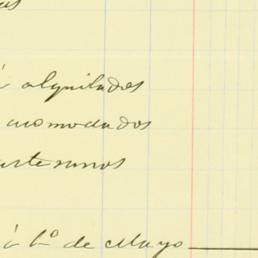 á alquilados
acomodados
artesanos
á 1º de Mayo